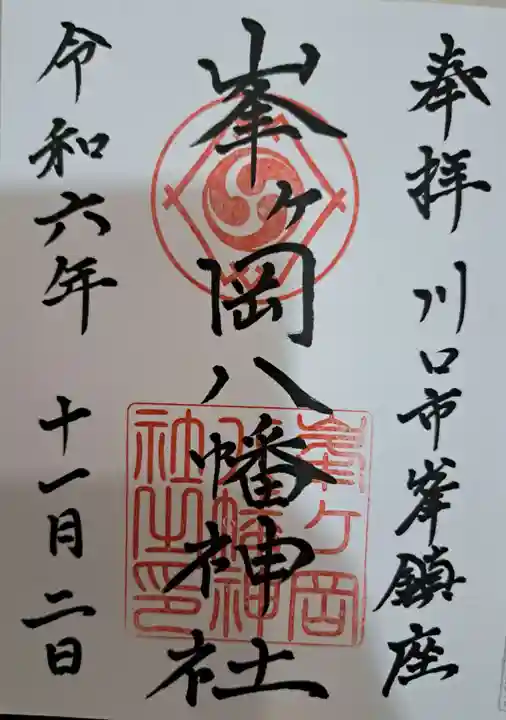 奉拝 川口市峯鎮座
峯ヶ岡八幡神社
峯ヶ岡
八幡神
社之印
令和六年 十一月二日